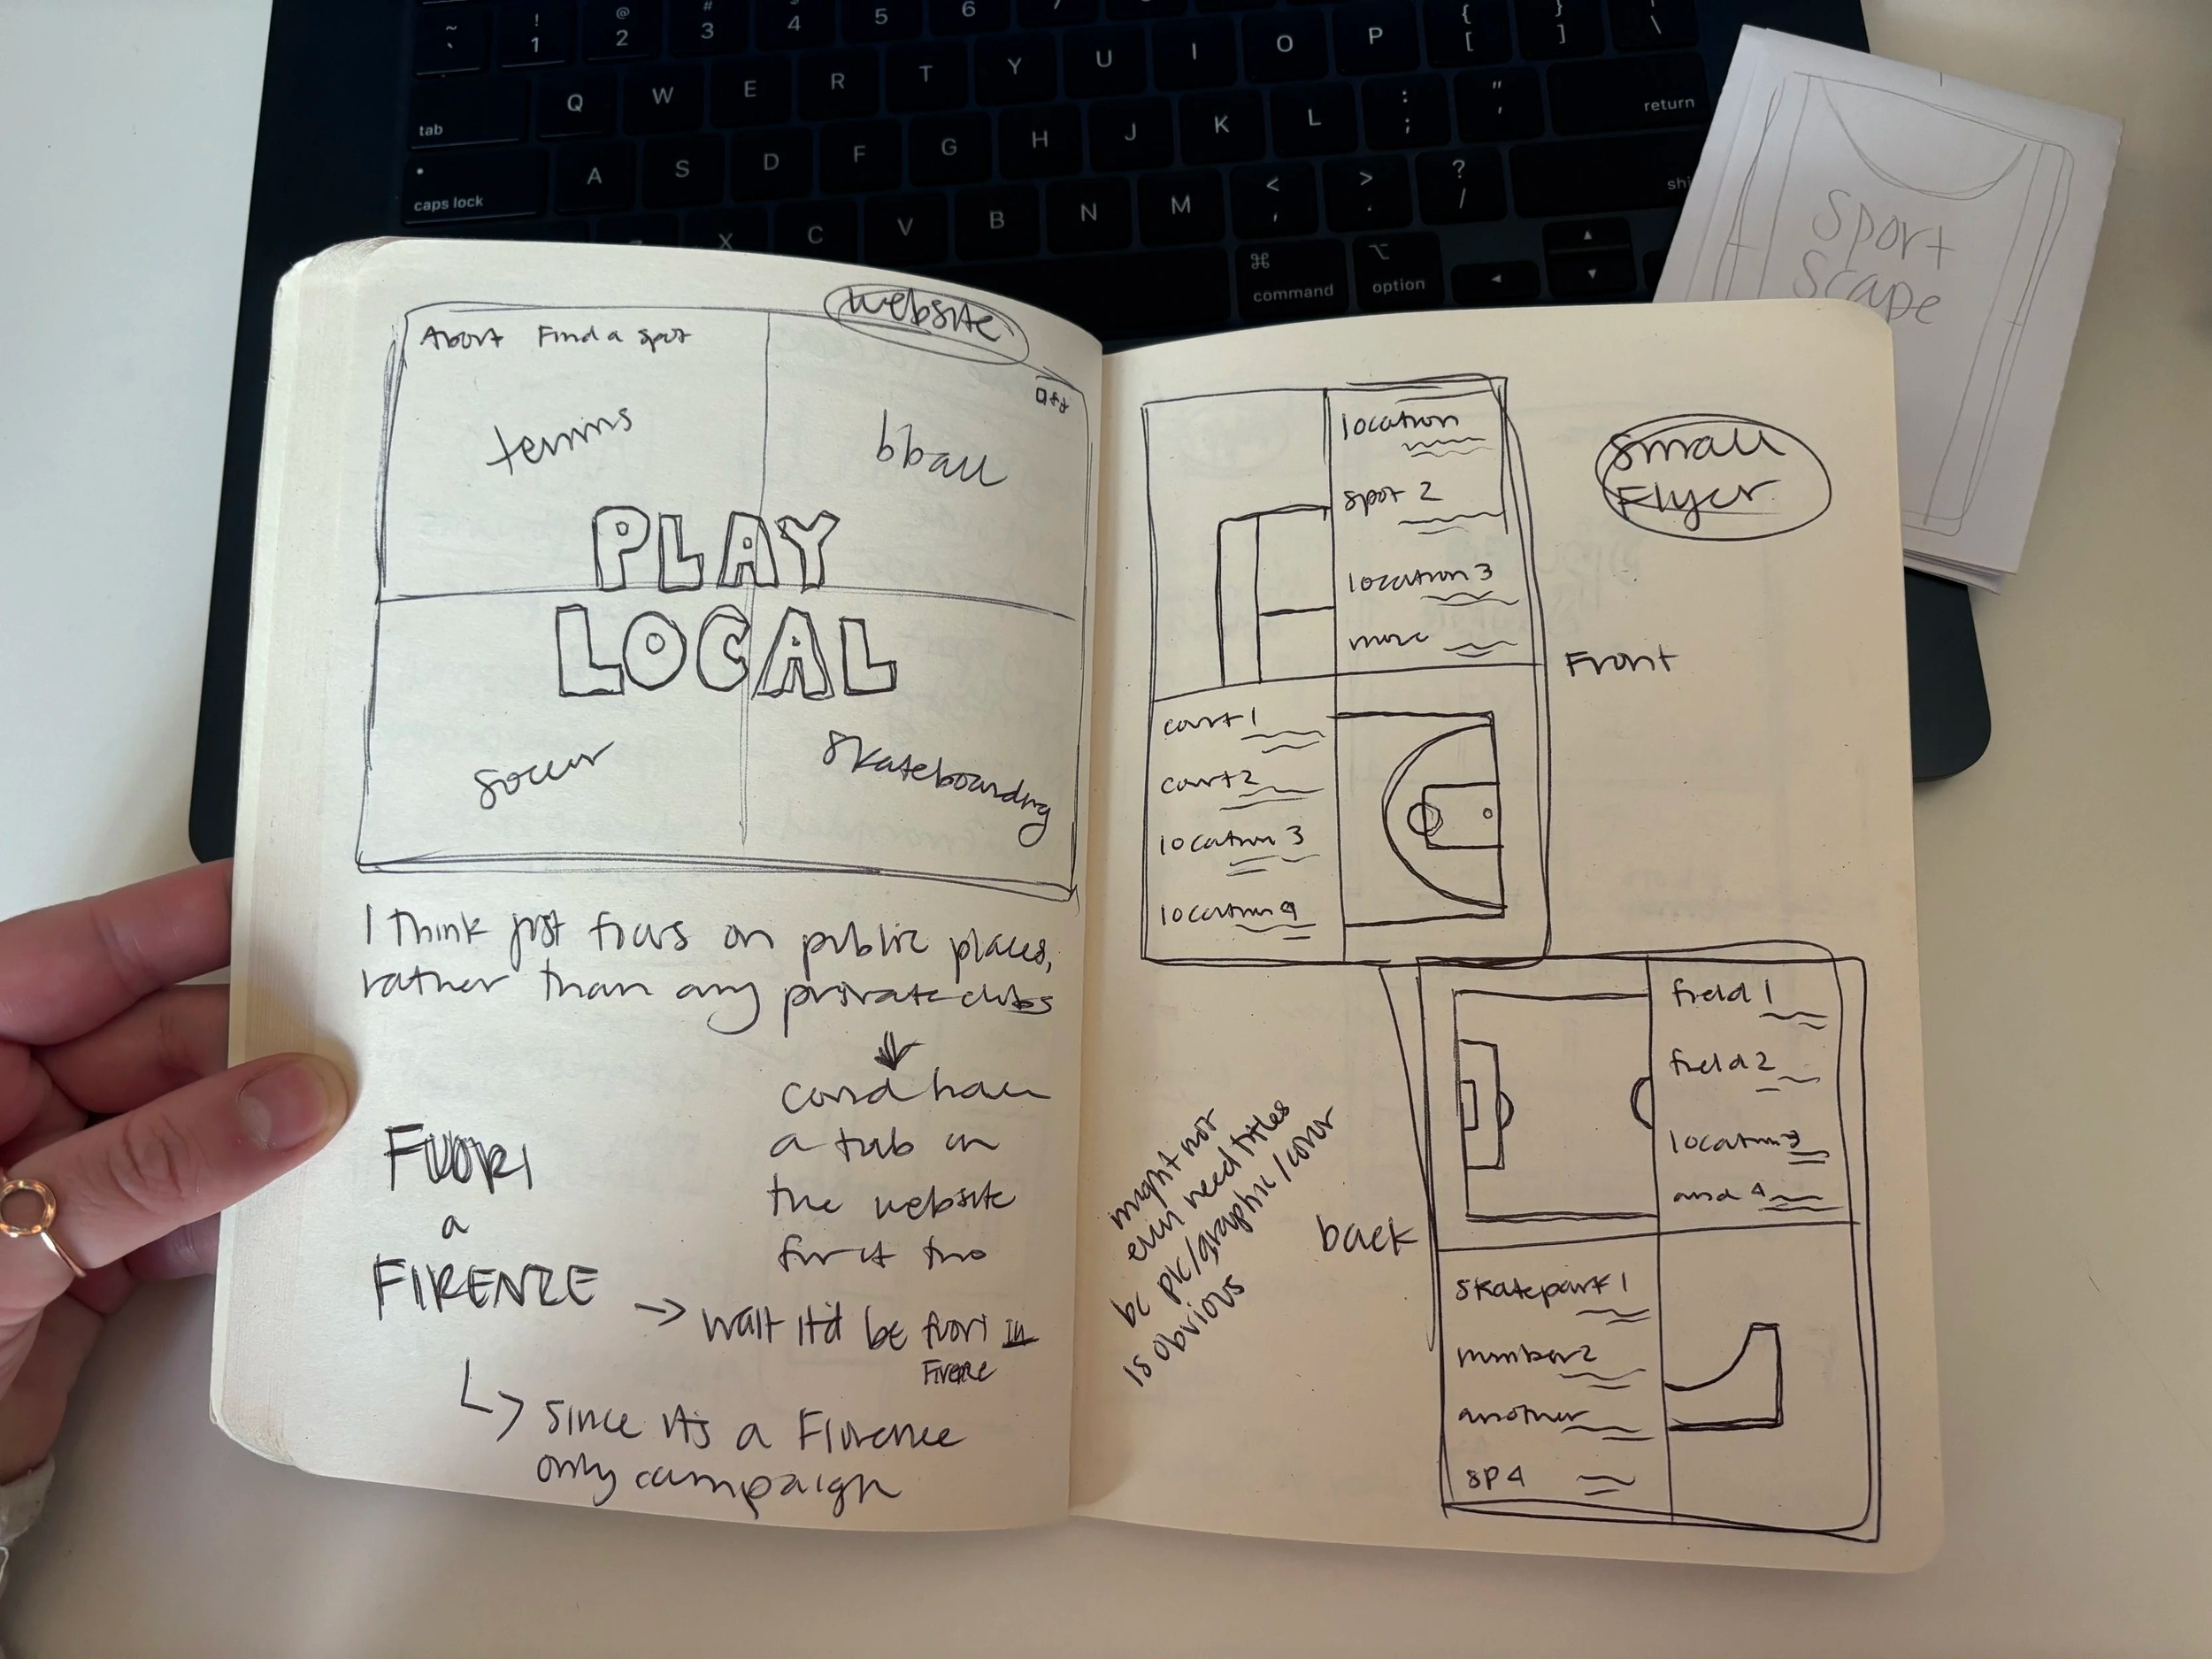 ~
`
!
1
@
2
#
3
$
4
5
6
7
{
[
}
]
\
tab
Q
W
E
R
T
Y
U
I
O
P
return
caps lock
A
S
D
F
G
H
J
K
L
:
;
"
'
X
C
V
B
N
M
<
,
>
.
?
/
shi
⌘
command
⌥
option
Sport
Scape
website
About Find a spot
tennis
bball
PLAY
LOCAL
soccer
skateboarding
I think just focus on public places,
rather than any private clubs
could have
a tab on
the website
for it tho
FUORI
a
FIRENZE
→ wait it'd be fuori in
Firenze
since it's a Firenze
only campaign
small
Flyer
Front
location
spot 2
location 3
more
court 1
court 2
location 3
location 4
back
field 1
field 2
location 3
and 4
skatepark 1
number 2
another
sp 4
might not
even need titles
bc pic/graphic/color
is obvious